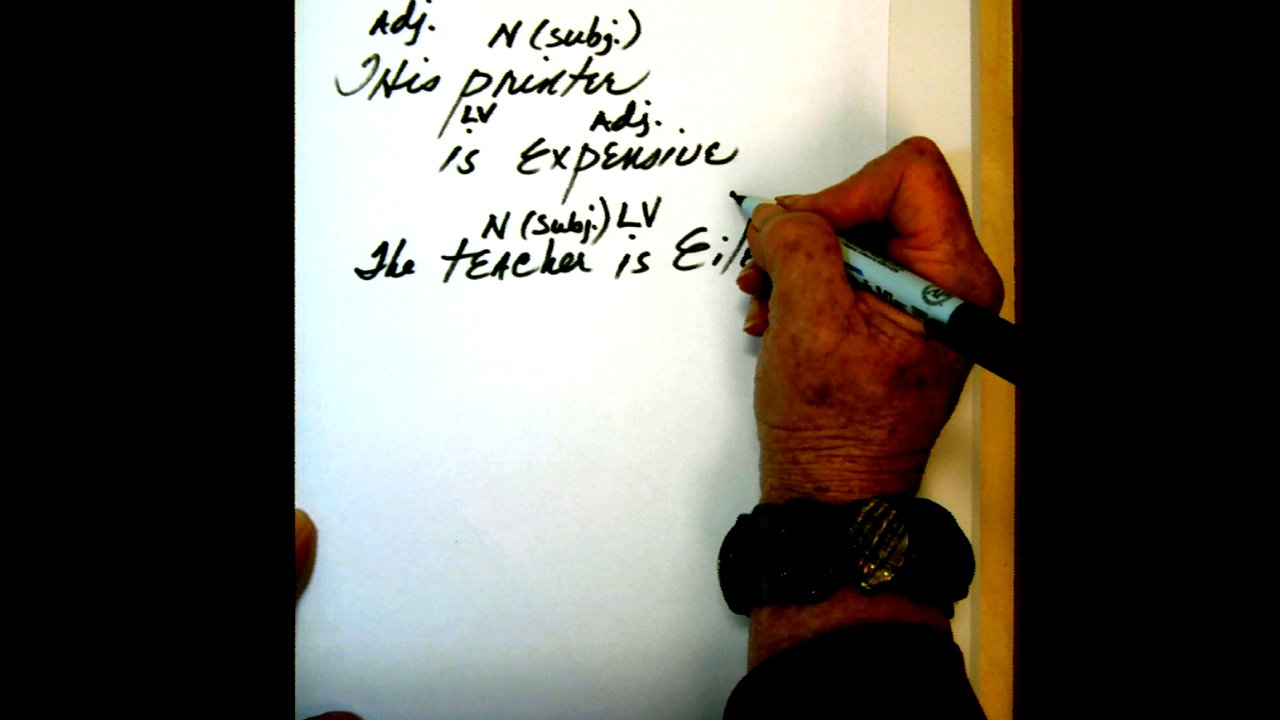 Adj. N (subj.)
THis printer
LV Adj.
is Expensive
N (subj.) LV
The tEAcher is